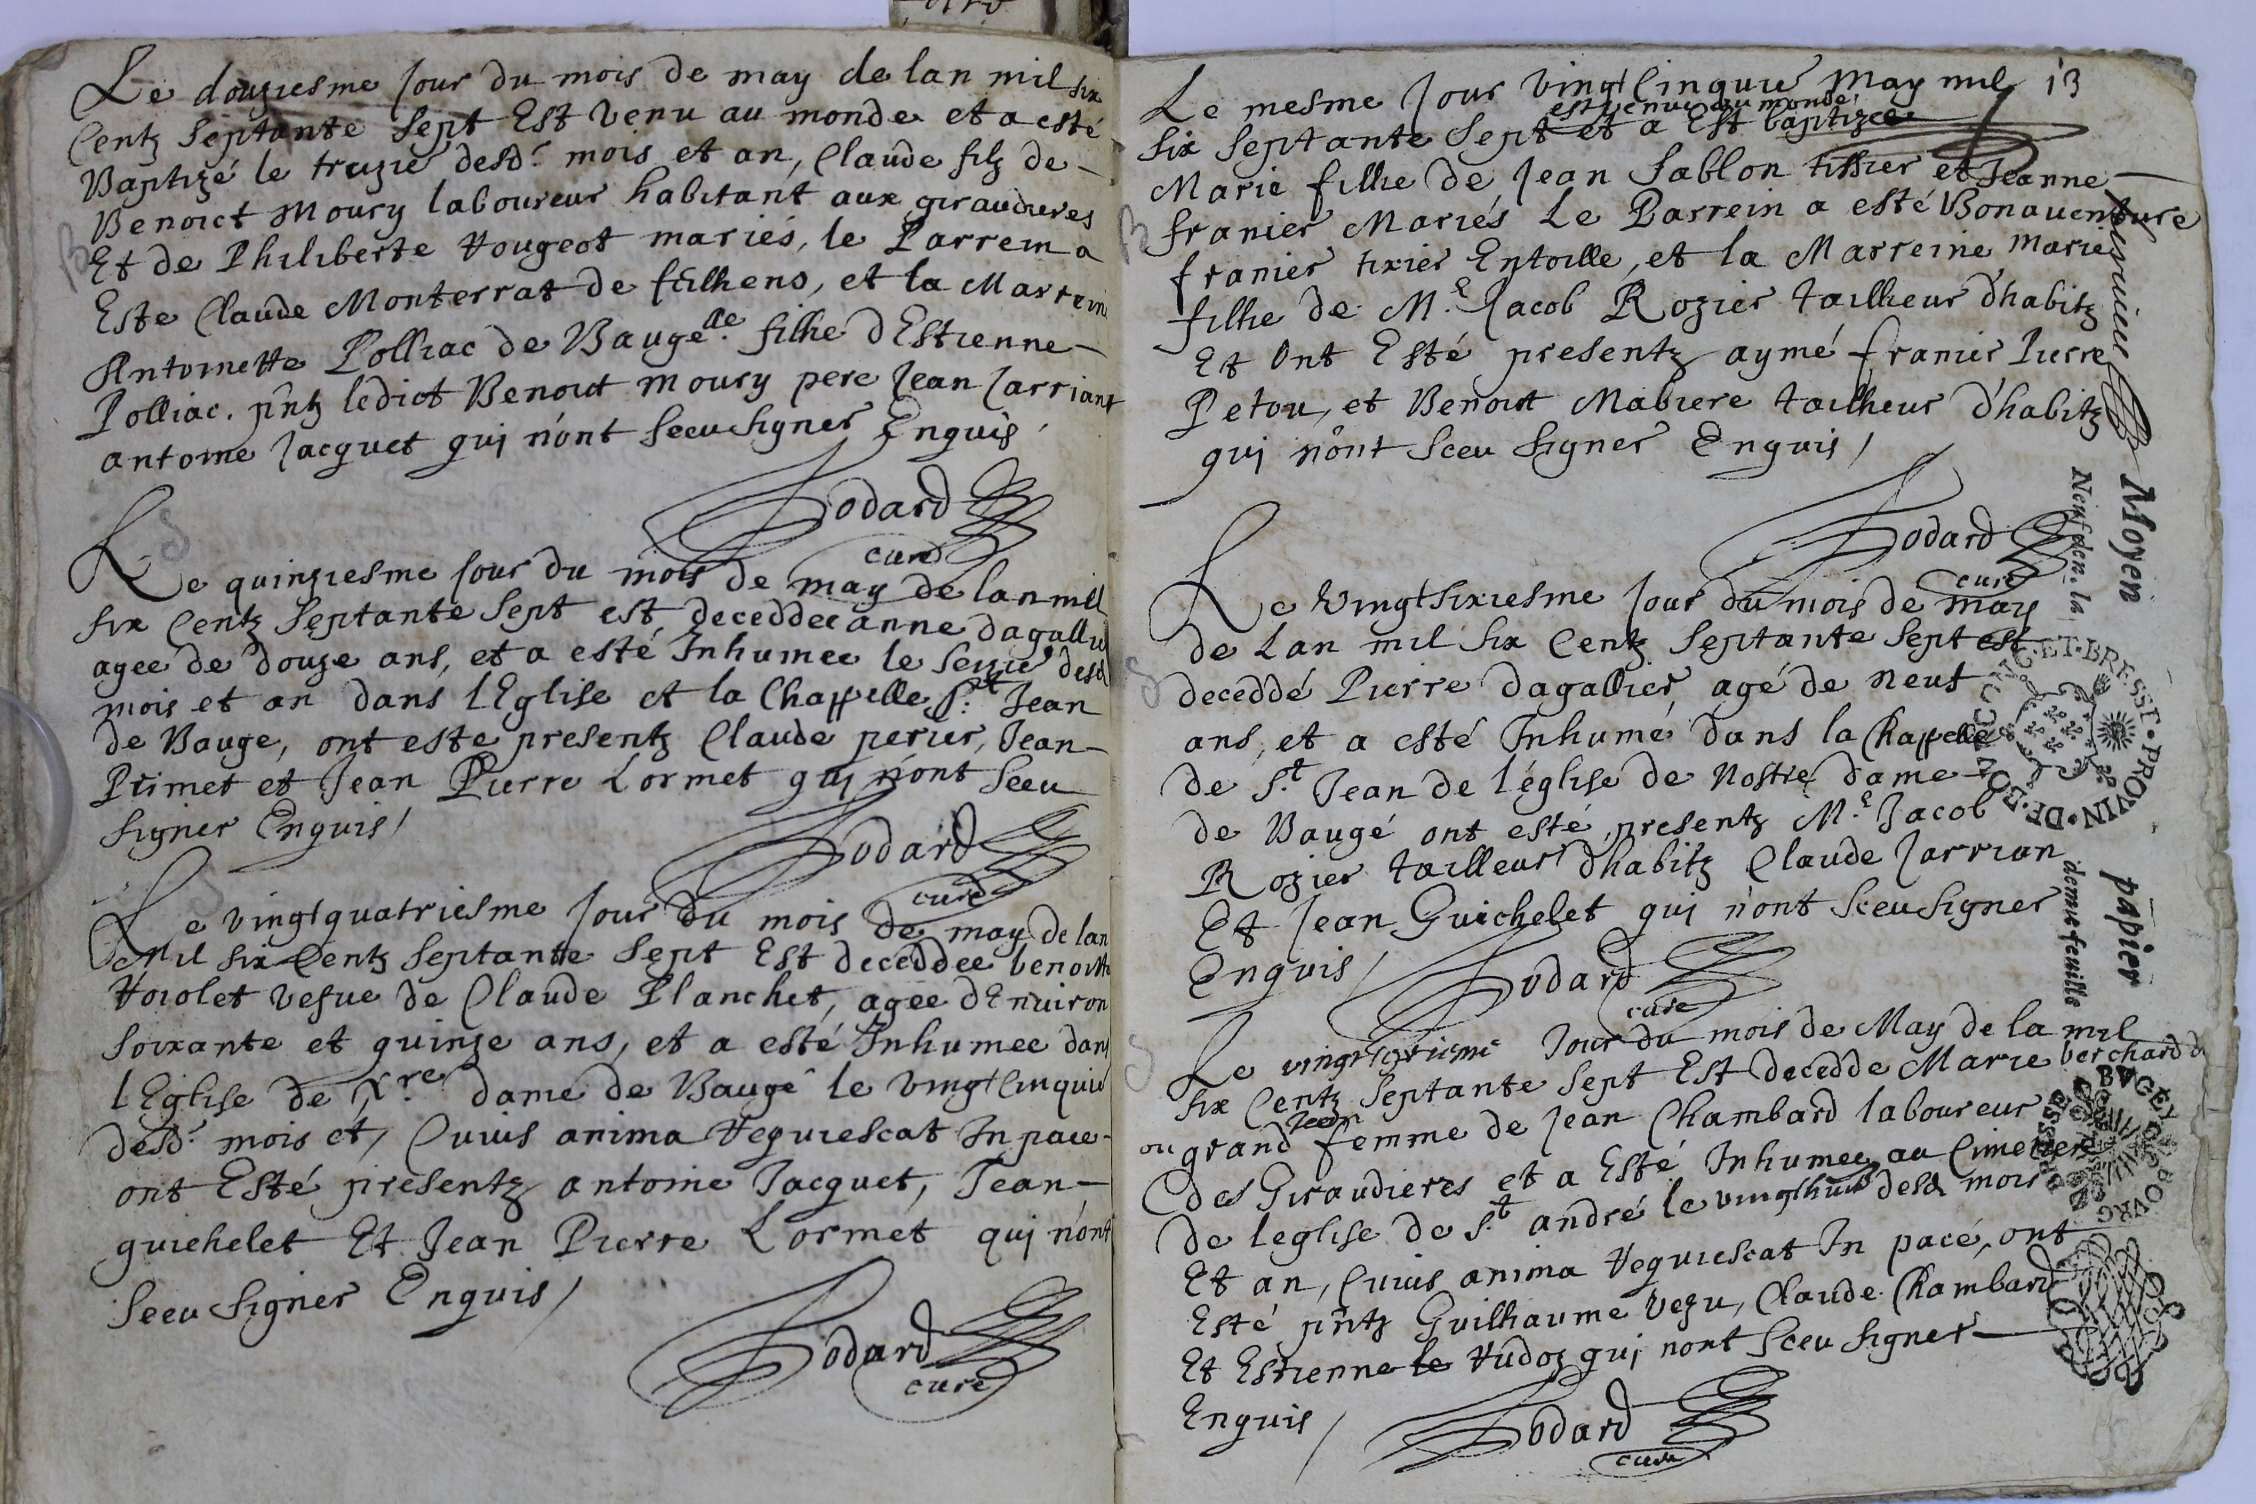 Le douziesme Jour du mois de may de lan mil six
Centz Septante Sept Est venu au monde et a esté
Baptizé le treizie desd. mois et an, Claude filz de
Benoict Moury laboureur habitant aux giraudieres
Et de Philiberte Vougeot mariés, le Parrein a
Este Claude Monterrat de et la Marreine
Antoinette Polliac de Baugé filhe dEstienne
Polliac. pntz ledict Benoict Moury pere Jean Jarriant
antoine Jacquet qui n'ont Sceu Signer Enquis
Godard
curé
Le quinziesme Jour du mois de may de lan mil
six Centz Septante Sept est deceddee anne dagallier
agee de douze ans, et a esté Inhumee le Sezie desd
mois et an dans lEglise et la Chappelle St Jean
de Bauge, ont este presentz Claude perier, Jean
Primet et Jean Pierre Lormet qui n'ont Sceu
Signer Enquis /
Godard
curé
Le vingtquatriesme Jour du mois de may de lan
mil six Centz Septante Sept Est deceddee benoitte
vefue de Claude Planchet, agee dEnuiron
Soixante et quinze ans, et a esté Inhumee dans
lEglise de Nre dame de Baugé le vingtcinquie
desd. mois et, Cuius anima Requiescat In pace
ont Esté presentz antoine Jacquet, Jean
guichelet Et Jean Pierre Lormet qui n'ont
Sceu Signer Enquis /
Godard
curé
13
Le mesme Jour vingtCinquie May mil
est venue au monde
six Septante Sept et a Est baptizee
Marie fillie de Jean Sablon tissier et Jeanne
franier Mariés Le Parrein a esté Bonauenture
franier tixier Entoille, et la Marreine Marie
filhe de Me Jacob Rozier tailleur d'habitz
Et Ont Esté presentz aymé franier Pierre
Petou, et Benoict Mabiere tailheur d'habitz
qui n'ont Sceu Signer Enquis /
Godard
curé
Le vingtsixiesme Jour du mois de may
de Lan mil six Centz Septante Sept est
deceddé Pierre dagallier, agé de neuf
ans, et a esté Inhumé dans la Chappelle
de St Jean de léglise de Nostre dame
de Baugé ont esté presentz Me Jacob
Rozier tailleur dhabitz Claude Jarrian
Et Jean Guichelet qui n'ont Sceu Signer
Enquis /
Godard
cure
Le vingtseptiesme Jour du mois de May de la mil
six Centz Septante Sept Est decedde Marie berchard
ou grand Jean femme de Jean Chambard laboureur
des Giraudieres et a Esté Inhumee au Cimetiere
de leglise de St andré le vingthuit desd mois
Et an, Cuius anima Requiescat In pace, ont
Esté pntz Guilhaume Vezu, Claude Chambard
Et Estienne le Vudoz qui nont Sceu Signer
Enquis /
Godard
curé
Moyen papier
Neuf den. la demie feuille
BVGEY